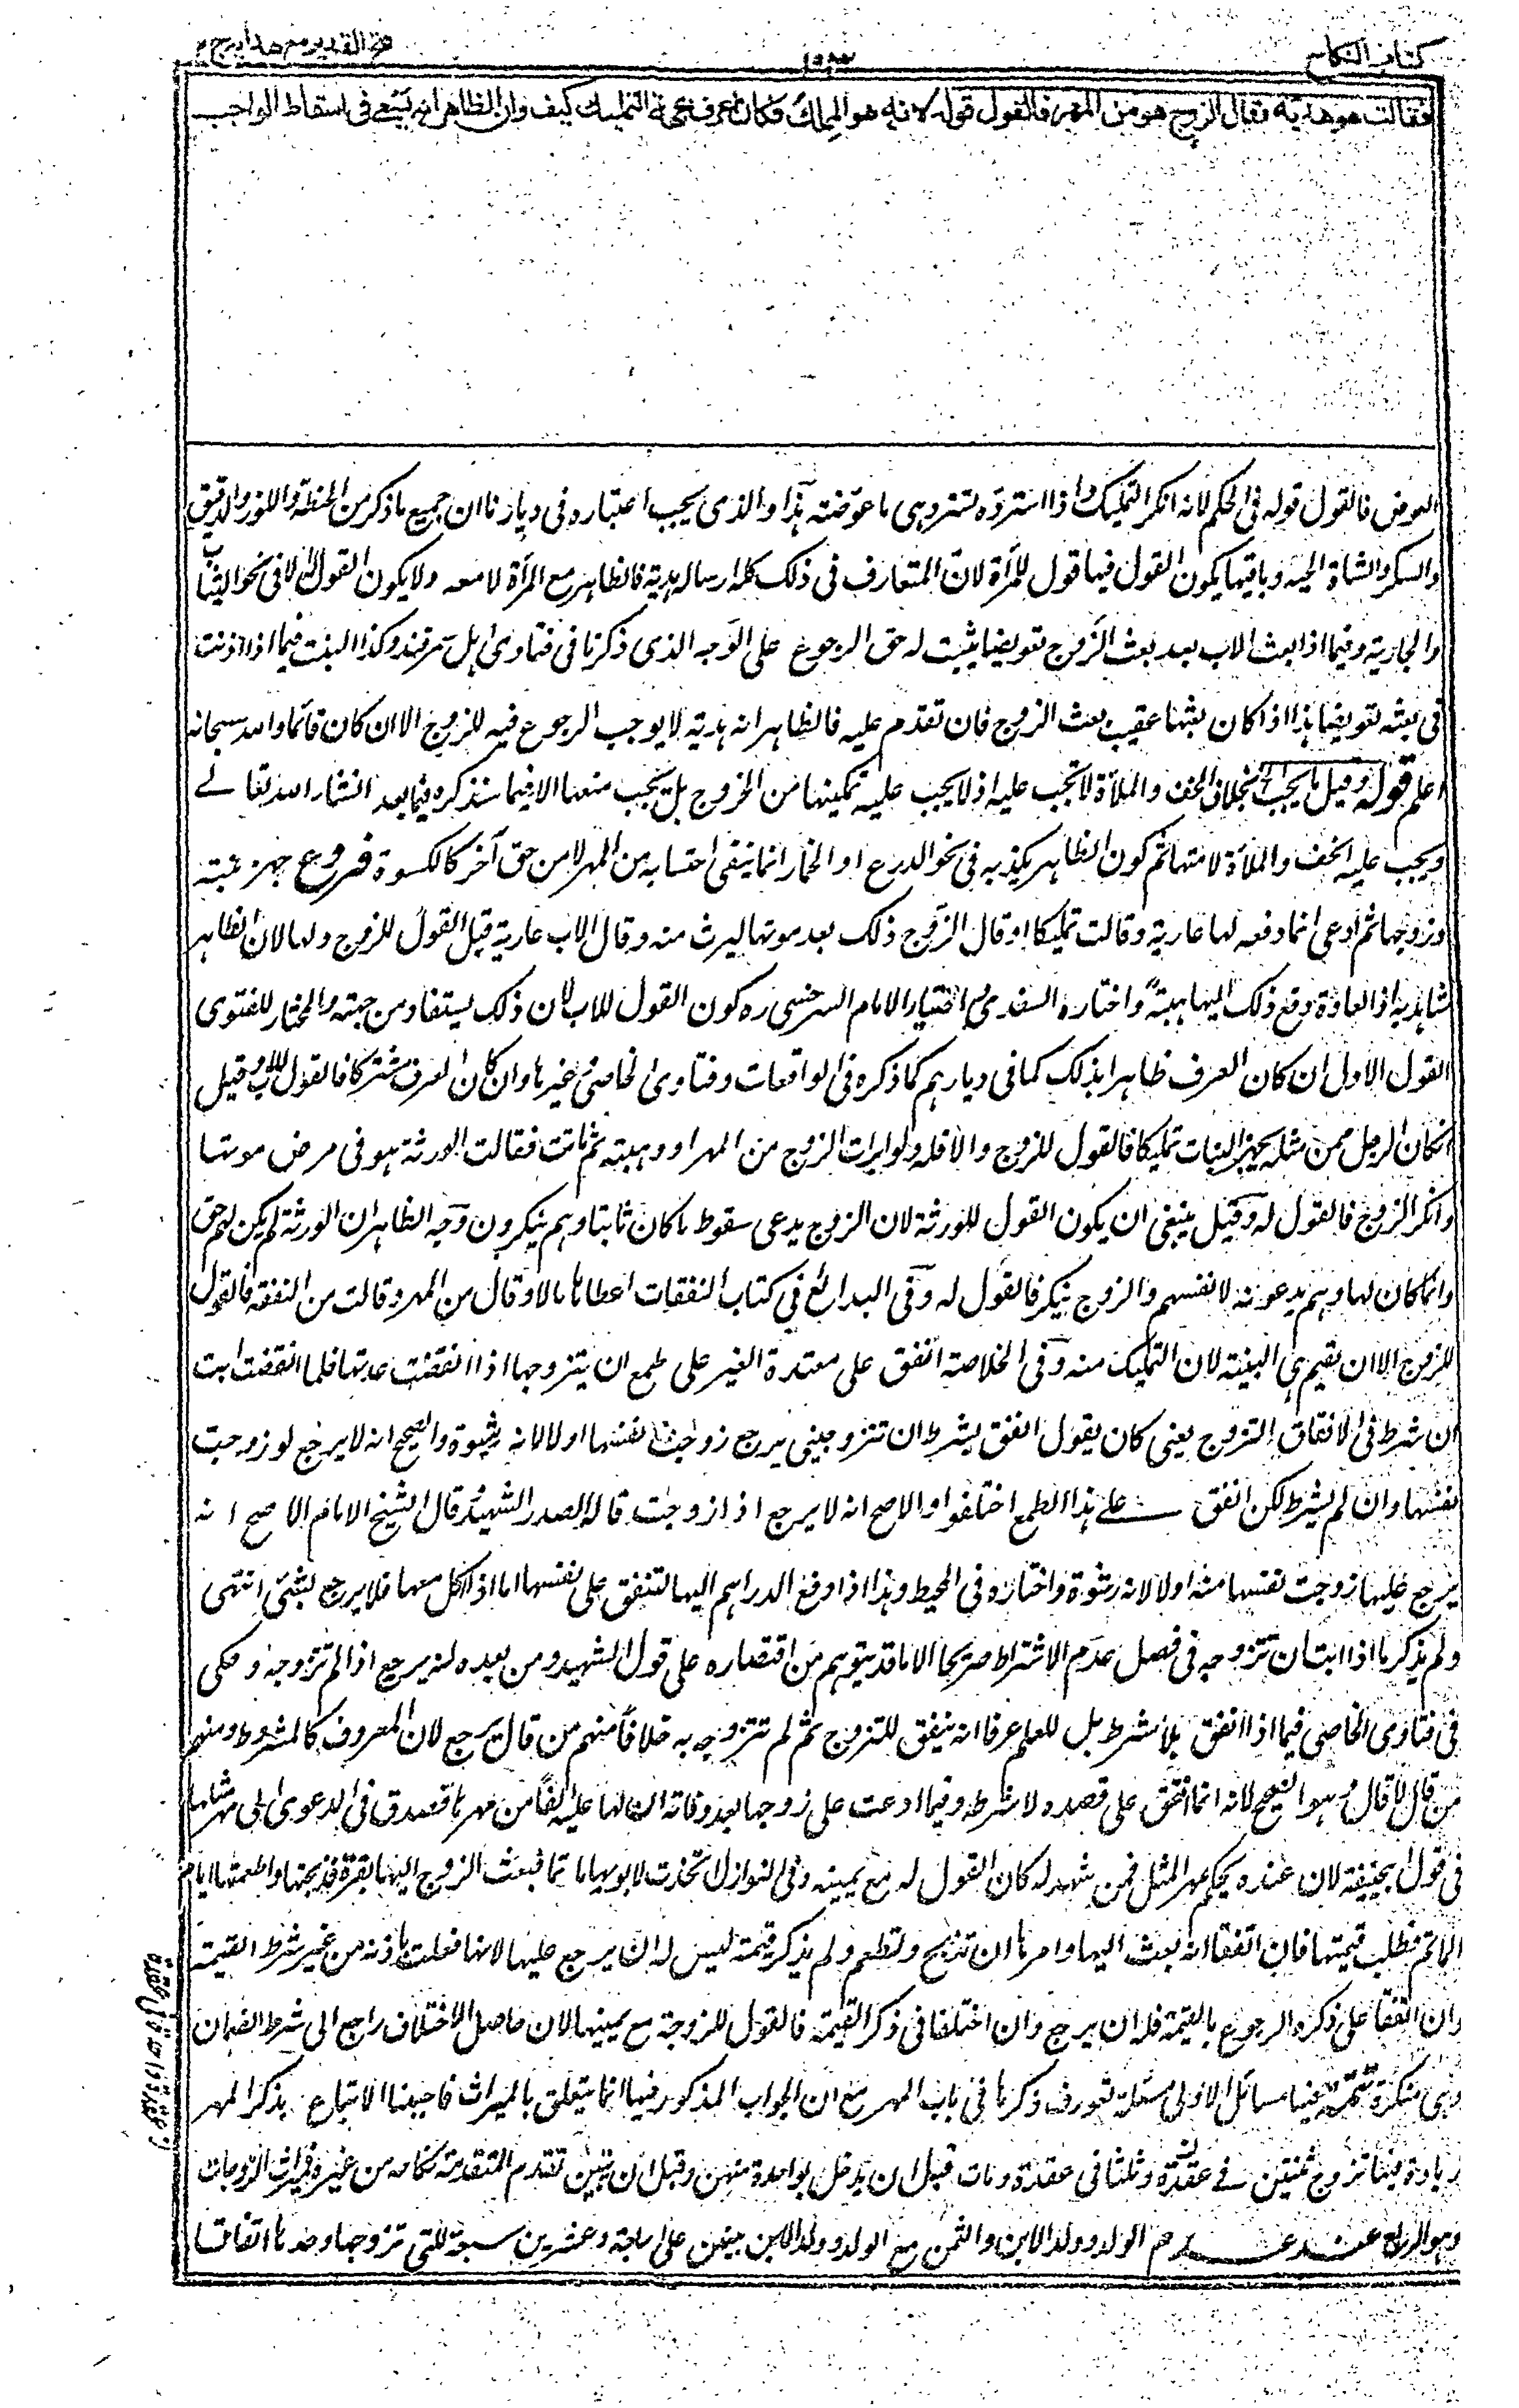 كتاب النكاح
فتح القدير مع هدايه ج ٢
فقالت هو هدية وقال الزوج هو من المهر فالقول قوله لانه هو المملك فكان اعرف بجهة التمليك كيف وان الظاهر انه يسعى فى اسقاط الواجب
العوض فالقول قوله فى الحكم لانه انكر التمليك واذا استرده تسترد هى ما عوضته هذا والذى يجب اعتباره فى ديارنا ان جميع ما ذكر من الحنطة واللوز والدقيق
والسكر والشاة الحية وباقيها يكون القول فيها قول المرأة لان المتعارف فى ذلك كله ارساله هدية فالظاهر مع المرأة لا معه ولا يكون القول له الا فى نحو الثياب
والجارية وفيما اذا بعث الاب بعد بعث الزوج تعويضا يثبت له حق الرجوع على الوجه الذى ذكرنا فى فتاوى اهل سمرقند وكذا البنت فيما اذا اذنت
فى بعثه تعويضا هذا اذا كان بعثها عقيب بعث الزوج فان تقدم عليه فالظاهر انه هدية لا يوجب الرجوع فيه للزوج الا ان كان قائما والله سبحانه
اعلم قوله وقيل ما يجب الخ بخلاف الخف والملأة لا تجب عليه اذ لا يجب عليه تمكينها من الخروج بل يجب منعها الا فيما سنذكره فيما بعد انشاء الله تعالے
ويجب عليه الخف والملأة لامتها ثم كون الظاهر يكذبه فى نحو الدرع او الخمار انما ينفى احتسابه من المهر لا من حق آخر كالكسوة فروع جهز بنته
وزوجها ثم ادعى انما دفعه لها عارية وقالت تمليكا او قال الزوج ذلك بعد موتها ليرث منه وقال الاب عارية قيل القول للزوج ولها لان الظاهر
شاهد به اذ العادة وقع ذلك اليها هبة واختاره السغدى واختيار الامام السرخسى ره كون القول للاب لان ذلك يستفاد من جهته والمختار للفتوى
القول الاول ان كان العرف ظاهرا بذلك كما فى ديارهم كما ذكره فى الواقعات وفتاوى الخاصى وغيرها وان كان العرف مشتركا فالقول للاب وقيل
انكان الرجل ممن مثله يجهز البنات تمليكا فالقول للزوج والا فله ولو ابرأت الزوج من المهر او وهبته ثم ماتت فقالت الورثة هو فى مرض موتها
وانكر الزوج فالقول له وقيل ينبغى ان يكون القول للورثة لان الزوج يدعى سقوط ما كان ثابتا وهم ينكرون وجه الظاهر ان الورثة لم يكن لهم حق
وانما كان لها وهم يدعونه لانفسهم والزوج ينكر فالقول له وفى البدائع فى كتاب النفقات اعطاها مالا وقال من المهر وقالت من النفقة فالقول
للزوج الا ان تقيم هى البينة لان التمليك منه وفى الخلاصة انفق على معتدة الغير على طمع ان يتزوجها اذا انقضت عدتها فلما انقضت ابت
ان شرط فى الانفاق التزوج يعنى كان يقول انفق بشرط ان تتزوجينى يرجع زوجت نفسها اولا لانه رشوة والصحيح انه لا يرجع لو زوجت
نفسها وان لم يشترط لكن انفق علے هذا الطمع اختلفوا والاصح انه لا يرجع اذا زوجت قاله الصدر الشهيد وقال الشيخ الامام الاصح انه
يرجع عليها زوجت نفسها منه اولا لانه رشوة واختاره فى المحيط وهذا اذا دفع الدراهم اليها لتنفق على نفسها اما اذا اكل معها فلا يرجع بشئى انتهى
ولم يذكر ما اذا ابت ان تتزوجه فى فصل عدم الاشتراط صريحا الا ما قد يتوهم من اقتصاره على قول الشهيد ومن بعده انه يرجع اذا لم تتزوجه وحكى
فى فتاوى الخاصى فيما اذا انفق بلا شرط بل للعلم عرفا انه ينفق للتزوج ثم لم تتزوج به خلافا منهم من قال يرجع لان المعروف كالمشروط ومنهم
من قال لا قال وهو الصحيح لانه انما انفق على قصده لا شرطه وفيما ادعت على زوجها بعد وفاته ان لها عليه الفا من مهرها تصدق فى الدعوى الى مهر مثلها
فى قول ابيحنيفة لان عنده يحكم مهر المثل فمن شهد له كان القول له مع يمينه وفى النوازل اتخذت لابويها ماتما فبعث الزوج اليها بقرة فذبحتها واطعمتها ايام
الماتم فطلب قيمتها فان اتفقا انه بعث اليها وامرها ان تذبح وتطعم ولم يذكر قيمة ليس له ان يرجع عليها لانها فعلت باذنه من غير شرط القيمة
وان اتفقا على ذكره الرجوع بالقيمة فله ان يرجع وان اختلفا فى ذكر القيمة فالقول للزوجة مع يمينها لان حاصل الاختلاف راجع الى شرط الضمان
وهى منكرة تتمة فيها مسائل الاولى مسئلة تعورف ذكرها فى باب المهر مع ان الجواب المذكور فيها انما يتعلق بالميراث فاحببنا الاتباع بذكر المهر
زيادة فيها تزوج ثنتين فے عقدة وثلثا فى عقدة ومات قبل ان يدخل بواحدة منهن وقبل ان يتبين تقدم المتقدمة نكاحه من غيره فميراث الزوجات
وهو الربع عند عدم الولد وولد الابن والثمن مع الولد وولد الابن بينهن على اربعة وعشرين سبعة للتى تزوجها وحدها اتفاقا